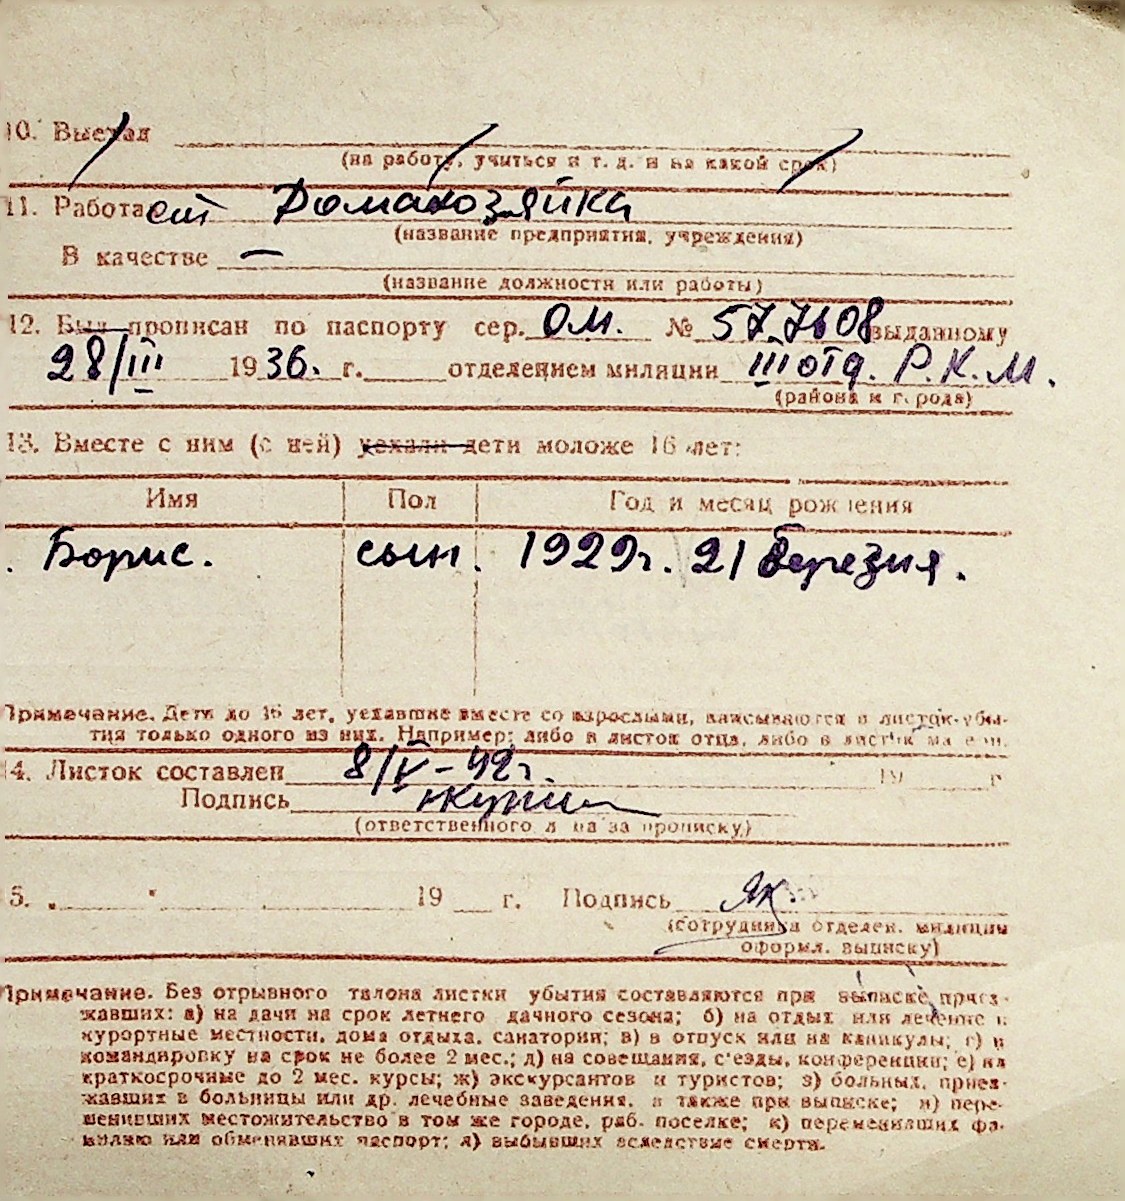 10. Выехал
(на работу, учиться и т. д. и на какой срок)
11. Работает Домахозяйка
(название предприятия, учреждения)
В качестве —
(название должности или работы)
12. Был прописан по паспорту сер. ОМ. № 577608 выданному
28/III 1936. г. отделением милиции III отд. Р.К.М.
(района и города)
13. Вместе с ним (с ней) уехали дети моложе 16 лет:
Имя Пол Год и месяц рождения
Борис. сын. 1929г. 21 березня.
Примечание. Дети до 16 лет, уехавшие вместе со взрослыми, вписываются в листок-убы-
тия только одного из них. Например: либо в листок отца, либо в листок матери.
14. Листок составлен 8/IV-42г. 19 г
Подпись
(ответственного лица за прописку)
5. " 19 г. Подпись Як
(сотрудника отделен. милиции
оформл. выписку)
Примечание. Без отрывного талона листки убытия составляются при выписке приез-
жавших: а) на дачи на срок летнего дачного сезона; б) на отдых или лечение в
курортные местности, дома отдыха, санатории; в) в отпуск или на каникулы; г) в
командировку на срок не более 2 мес.; д) на совещания, с'езды, конференции; е) на
краткосрочные до 2 мес. курсы; ж) экскурсантов и туристов; з) больных, приез-
жавших в больницы или др. лечебные заведения, а также при выписке; и) пере-
менивших местожительство в том же городе, раб. поселке; к) переменивших фа-
милию или обменявших паспорт; л) выбывших вследствие смерти.